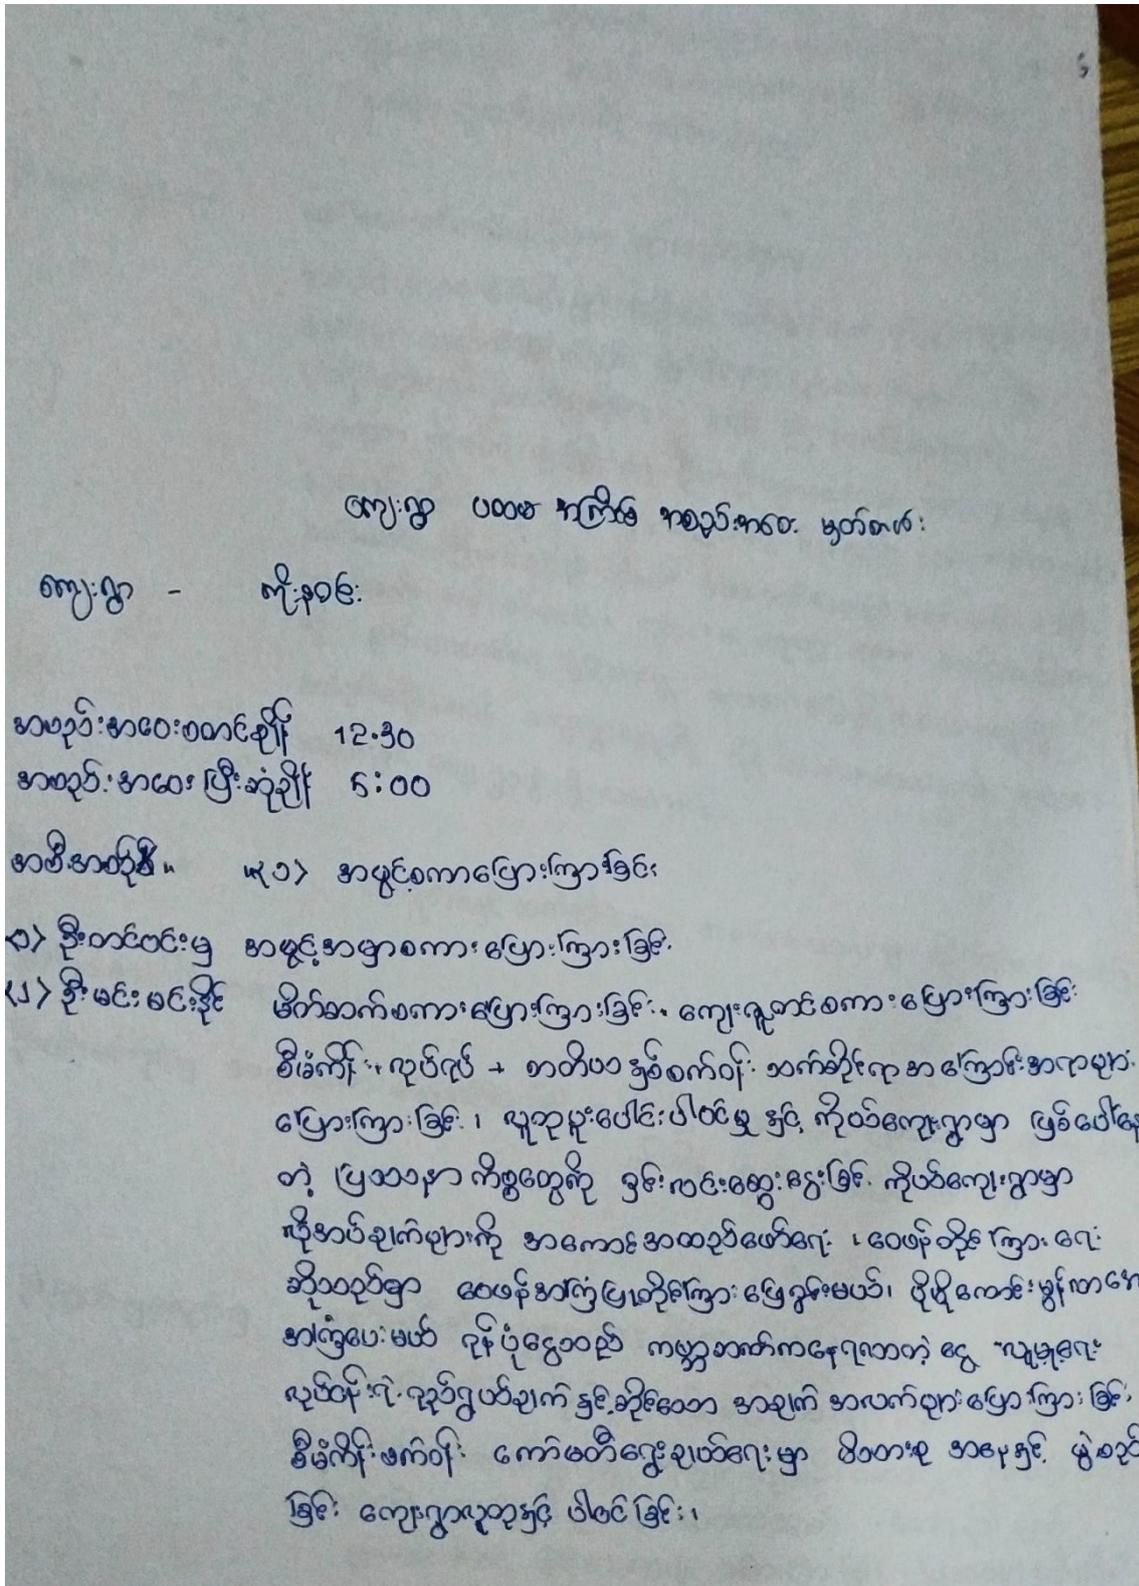 ကျေးရွာ ပထမ အကြိမ် အစည်းအဝေး မှတ်တမ်း
ကျေးရွာ -
အစည်းအဝေးစတင်ချိန် 12.30
အစည်းအဝေး ပြီးဆုံးချိန် 5:00
အစီအစဉ် "(၁) အဖွင့်စကားပြောကြားခြင်း
(၁) ဦးတင်ဝင်းမှ အဖွင့်အမှာစကား ပြောကြားခြင်း
(၂) ဦးမင်းမင်းနိုင် မိတ်ဆက်စကားပြောကြားခြင်း၊ ကျေးဇူးတင်စကားပြောကြားခြင်း
စီမံကိန်း လုပ်ငန်း သက်ဆိုင်ရာအကြောင်းအရာများ
ပြောကြားခြင်း၊ လူထုပူးပေါင်းပါဝင်မှု နှင့် ကိုယ်ကျေးရွာမှာ ဖြစ်ပေါ်နေ
တဲ့ ပြဿနာ ကိစ္စတွေကို ရှင်းလင်းဆွေးနွေးခြင်း ကိုယ်ကျေးရွာမှာ
လိုအပ်ချက်များကို အကောင်အထည်ဖော်ရေး ၊ ဝေဖန်တိုင်ကြားရေး
ဆိုသည်မှာ ဝေဖန်အကြံပြုတိုင်ကြား ဖြေရှင်းမယ်၊ ပိုမိုကောင်းမွန်လာအော
အကြံပေးမယ် ရန်ပုံငွေသည် ကမ္ဘာ့ဘဏ်ကနေရလာတဲ့ ငွေ လူမှုရေး
လုပ်ငန်းရဲ့ ရည်ရွယ်ချက် နှင့်ဆိုင်သော အချက်အလက်များပြောကြားခြင်း
စီမံကိန်း ကော်မတီရွေးချယ်ရေးမှာ မိသားစု အနေနှင့် ဖွဲ့စည်း
ခြင်း ကျေးရွာလူထုနှင့် ပါဝင်ခြင်း၊